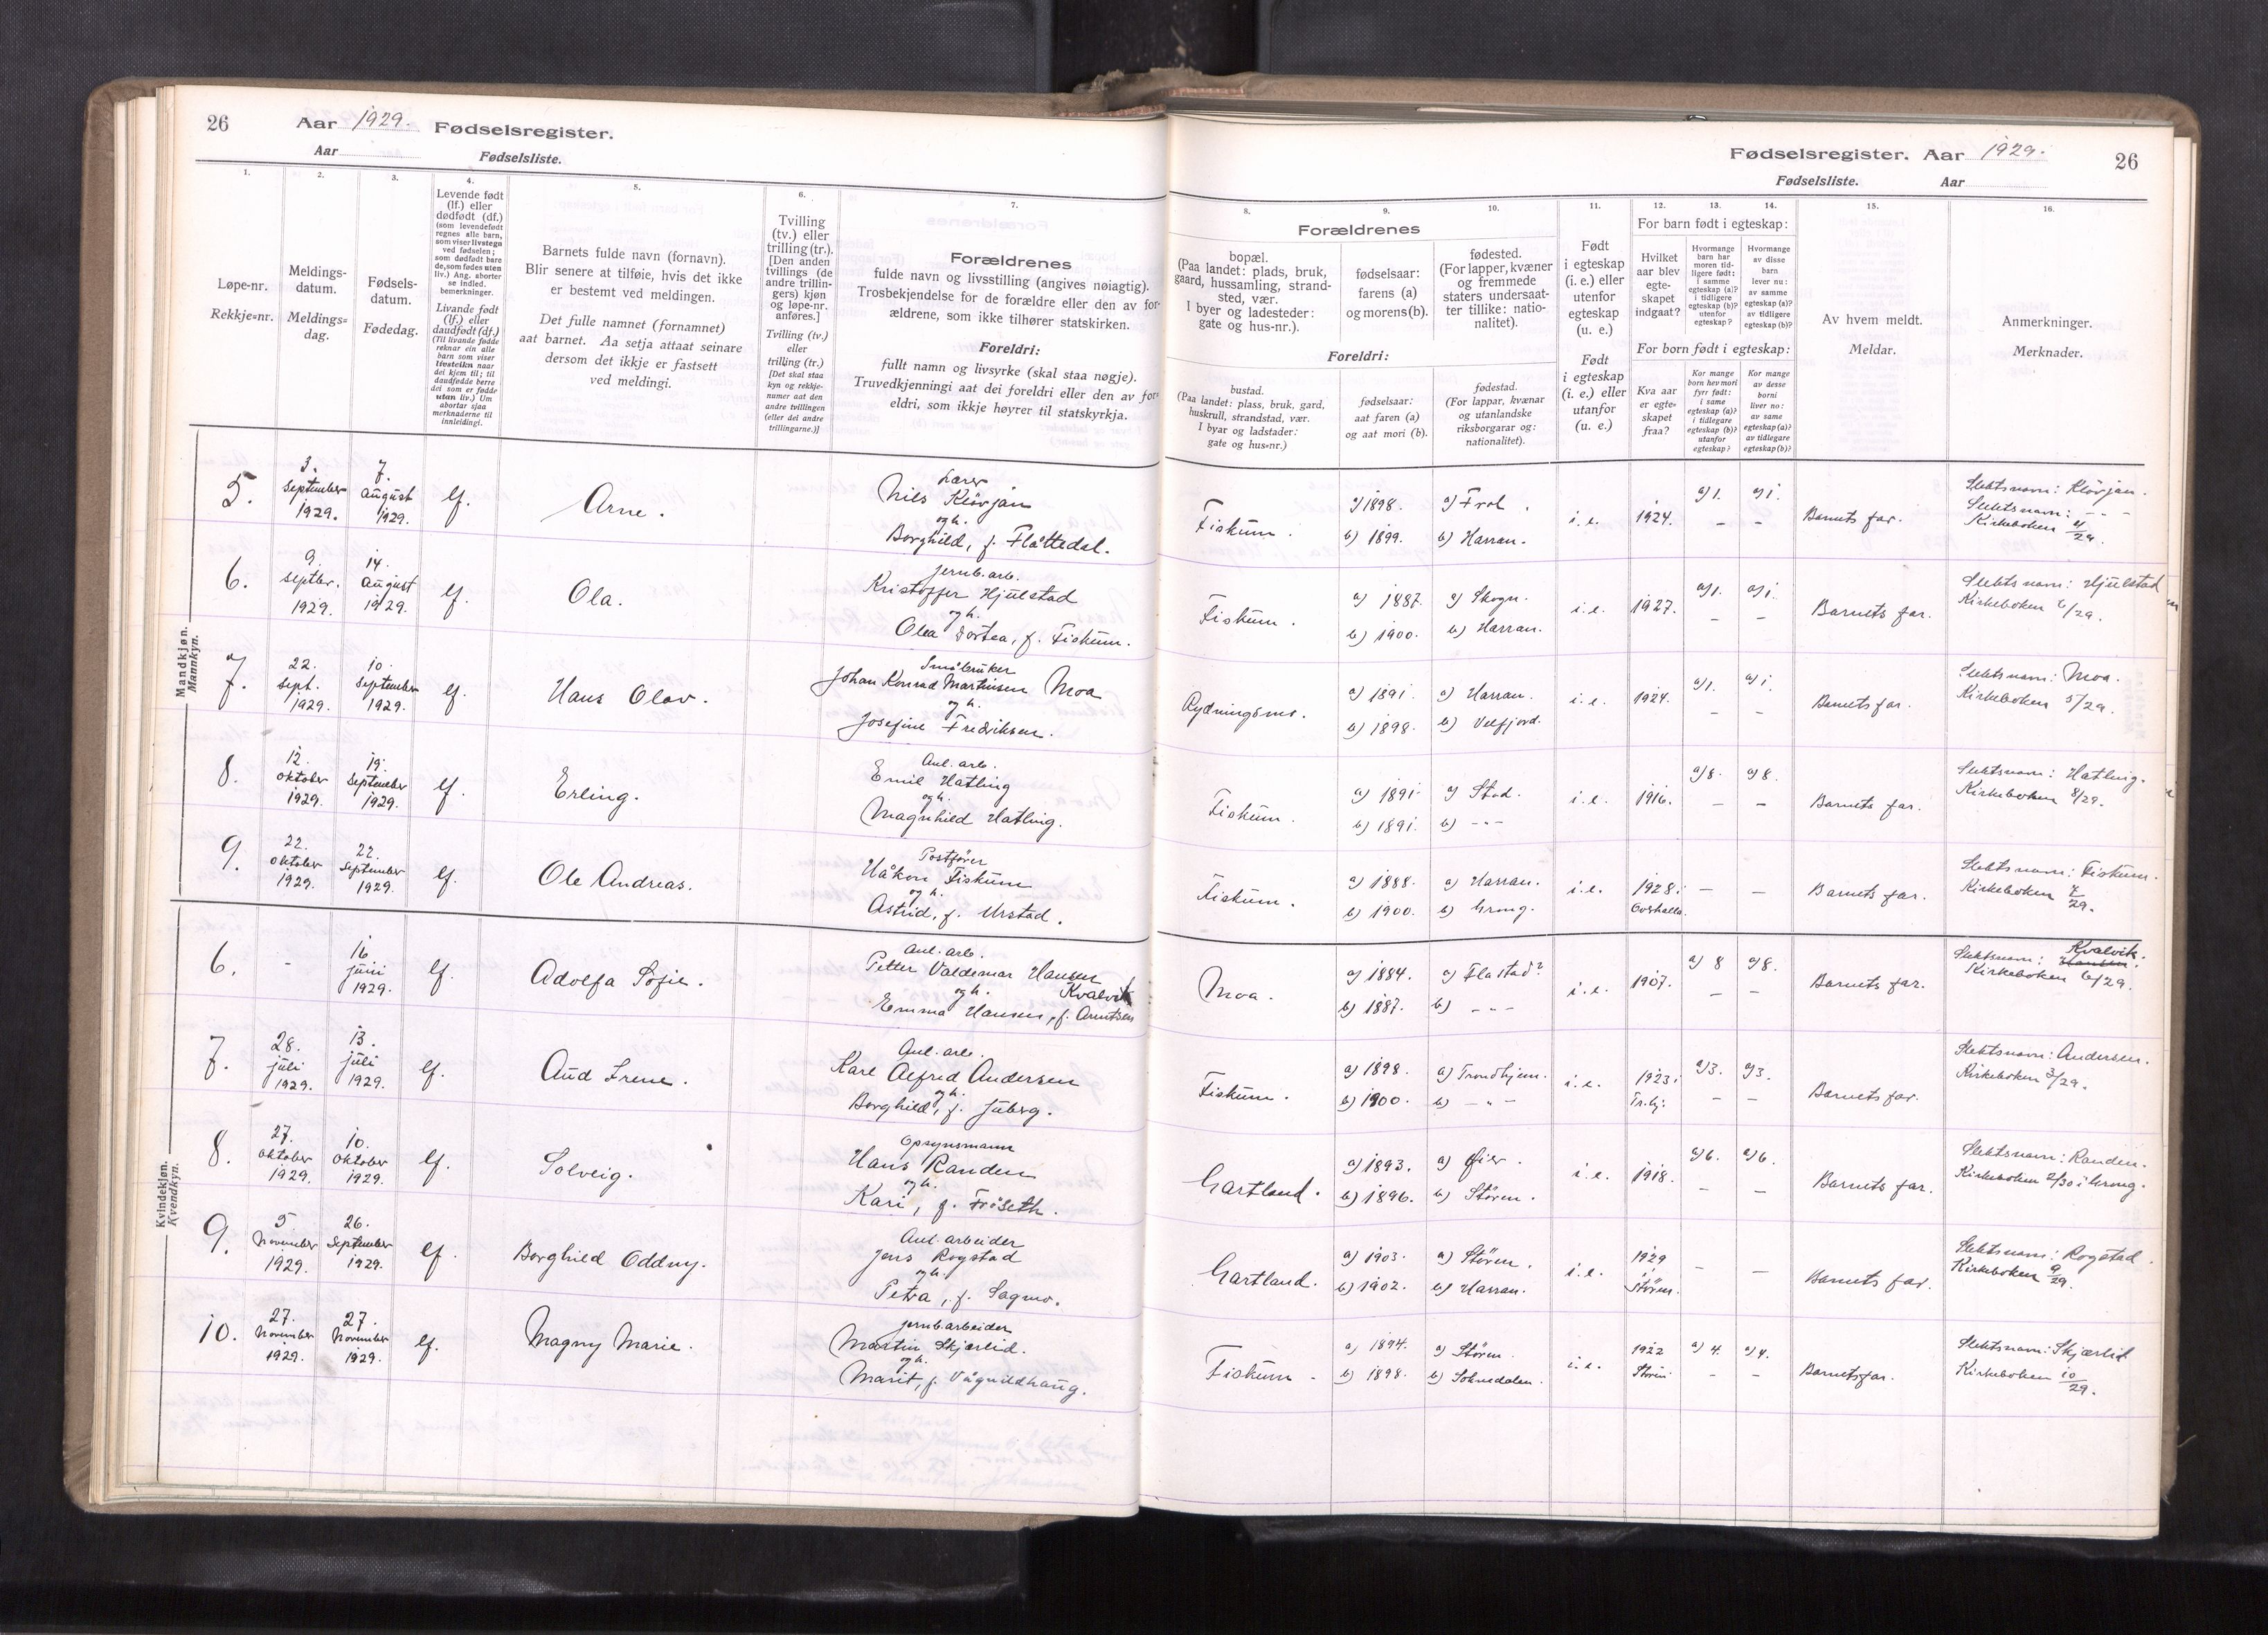 26 Aar 1929. Fødselsregister.
Aar Fødselsliste.
Fødselsregister. Aar 1929. 26
Fødselsliste. Aar
1. 2. 3. 4. 5. 6. 7.
Løpe-nr.
Rekkje-nr.
Meldings-
datum.
Meldings-
dag.
Fødsels-
datum.
Fødedag.
Levende født
(lf.) eller
dødfødt (df.)
(som levendefødt
regnes alle barn,
som viser livstegn
ved fødselen;
som dødfødt bare
de, som fødes uten
liv.) Ang. aborter
se indled.
bemerkninger.
Livande født
(lf.) eller
daudfødt (df.)
(Til livande fødde
reknar ein alle
barn som viser
livsteikn naar
dei kjem til; til
daudfødde berre
dei som er fødde
utan liv.) Um
abortar sjaa
merknaderne til
innleidingi.
Barnets fulde navn (fornavn).
Blir senere at tilføie, hvis det ikke
er bestemt ved meldingen.
Det fulle namnet (fornamnet)
aat barnet. Aa setja attaat seinare
dersom det ikkje er fastsett
ved meldingi.
Tvilling
(tv.) eller
trilling (tr.).
[Den anden
tvillings (de
andre trillin-
gers) kjøn
og løpe-nr.
anføres.]
Tvilling (tv.)
eller
trilling (tr.)
[Det skal staa
kyn og rekkje-
numer aat den
andre tvillingen
(eller dei andre
trillingarne.)]
Forældrenes
fulde navn og livsstilling (angives nøiagtig).
Trosbekjendelse for de forældre eller den av for-
ældrene, som ikke tilhører statskirken.
Foreldri:
fullt namn og livsyrke (skal staa nøgje).
Truvedkjenningi aat dei foreldri eller den av for-
eldri, som ikkje høyrer til statskyrkja.
8. 9. 10. 11. 12. 13. 14. 15. 16.
Forældrenes
bopæl.
(Paa landet: plads, bruk,
gaard, hussamling, strand-
sted, vær.
I byer og ladesteder:
gate og hus-nr.).
fødselsaar:
farens (a)
og morens (b).
fødested.
(For lapper, kvæner
og fremmede
staters undersaat-
ter tillike: natio-
nalitet).
Foreldri:
bustad.
(Paa landet: plass, bruk, gard,
huskrull, strandstad, vær.
I byar og ladstader:
gate og hus-nr.)
fødselsaar:
aat faren (a)
og aat mori (b).
fødestad.
(For lappar, kvænar
og utanlandske
riksborgarar og:
nationalitet).
Født
i egteskap
(i. e.) eller
utenfor
egteskap
(u. e.)
Født
i egteskap
(i. e.) eller
utanfor
(u. e.)
For barn født i egteskap:
Hvilket
aar blev
egte-
skapet
indgaat?
Hvormange
barn har
moren tid-
ligere født:
i samme
egteskap (a)?
i tidligere
egteskap (b)?
utenfor
egteskap?
Hvormange
av disse
barn
lever nu:
av samme
egteskap (a)?
av tidligere
egteskap (b)?
For born født i egteskap:
Kva aar
er egte-
skapet
fraa?
Kor mange
born hev mori
fyrr født:
i same
egteskap (a)?
i tidlegare
egteskap (b)?
utanfor
egteskap?
Kor mange
av desse
borni
liver no:
av same
egteskap (a)?
av tidlegare
egteskap (b)?
Av hvem meldt.
Meldar.
Anmerkninger.
Merknader.
Mandkjøn.
Mannkyn.
5. 3. september 1929. 7. august 1929. lf. Arne.
Lærer
Nils Klövjan
og h.
Borghild, f. Flåttedal.
Fiskum. a) 1898. a) Frol. i. e. 1924. a) 1. a) 1. Barnets far. Slektsnavn: Klövjan.
b) 1899. b) Harran. – – Slektsnavn: - " -
Kirkeboken 4/29.
6. 9. septbr. 1929. 14. august 1929. lf. Ola.
Jernb. arb.
Kristoffer Hjulstad
og h.
Olea Dortea, f. Fiskum.
Fiskum. a) 1887. a) Skogn. i. e. 1927. a) 1. a) 1. Barnets far. Slektsnavn: Hjulstad
b) 1900. b) Harran. – – Kirkeboken 6/29.
7. 22. sept. 1929. 10. september 1929. lf. Hans Olav.
Småbruker
Johan Konrad Martinsen Moa
og h.
Josefine Fredriksen.
Rydningsmo. a) 1891. a) Harran. i. e. 1924. a) 1. a) 1. Barnets far. Slektsnavn: Moa.
b) 1898. b) Velfjord. – – Kirkeboken 5/29.
8. 12. oktober 1929. 19. september 1929. lf. Erling.
Anl. arb.
Emil Hatling
og h.
Magnhild Hatling.
Fiskum. a) 1891. a) Stod. i. e. 1916. a) 8. a) 8. Barnets far. Slektsnavn: Hatling.
b) 1891. b) - " - – – Kirkeboken 8/29.
9. 22. oktober 1929. 22. september 1929. lf. Ole Andreas.
Postfører
Håkon Fiskum
og h.
Astrid, f. Urstad.
Fiskum. a) 1888. a) Harran. i. e. 1928. – – Barnets far. Slektsnavn: Fiskum.
b) 1900. b) Grong. Overhalla. Kirkeboken 7/29.
Kvindekjøn.
Kvendkyn.
6. - 16 juni 1929. lf. Adolfa Sofie.
Anl. arb.
Petter Valdemar Hansen
og h. Kvalvik
Emma Hansen, f. Arntsen
Moa. a) 1884. a) Flastad? i. e. 1907. a) 8 a) 8. Barnets far. Slektsnavn: Hansen. Kvalvik.
b) 1887. b) - " - – – Kirkeboken 6/29.
7. 28. juli 1929. 13. juli 1929. lf. Aud Irene.
Anl. arb.
Karl Alfred Andersen
og h.
Borghild, f. Juberg.
Fiskum. a) 1898. a) Trondhjem. i. e. 1923 i a) 3. a) 3. Barnets far. Slektsnavn: Andersen.
b) 1900. b) - " - Tr.hj. – – Kirkeboken 3/29.
8. 27. oktober 1929. 10. oktober 1929. lf. Solveig.
Opsynsmann
Hans Randen
og h.
Kari, f. Fröseth.
Gartland. a) 1893. a) Øier. i. e. 1918. a) 6. a) 6. Barnets far. Slektsnavn: Randen.
b) 1896. b) Stören. – – Kirkeboken 2/30 i Grong.
9. 5 november 1929. 26. september 1929. lf. Borghild Oddny.
Anl. arbeider
Jens Rogstad
og h.
Petra, f. Sagmo.
Gartland. a) 1903. a) Stören. i. e. 1929 i Stören. – – Barnets far. Slektsnavn: Rogstad.
b) 1902. b) Harran. Kirkeboken 9/29.
10. 27. november 1929. 27. november 1929. lf. Magny Marie.
Jernb. arbeider
Martin Skjærlid.
og h.
Marit, f. Vågnildhaug.
Fiskum. a) 1894. a) Stören. i. e. 1922 Stören. a) 4. a) 4. Barnets far. Slektsnavn: Skjærlid
b) 1898. b) Soknedalen. – – Kirkeboken 10/29.